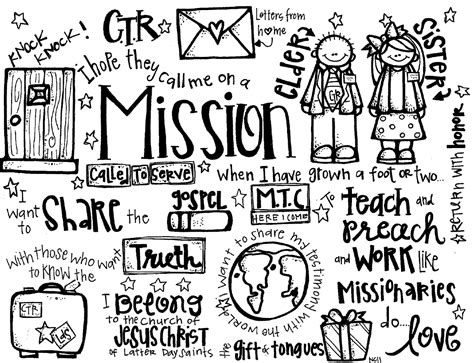 KNOCK KNOCK!
CTR
Letters from home
I hope they call me on a
Mission
ELDER
CTR
SISTER
CALLED TO SERVE
when I have grown a foot or two...
I want to SHARE the
gospel
M.T.C.
HERE I COME
To teach and preach
and WORK like
Missionaries
do...
love
RETURN WITH honor
with those who want
to know the
Truth
CTR
I BELONG
to the church of
JESUS CHRIST
of Latter Day saints
I want to share my testimony with all the world
the gift of tongues